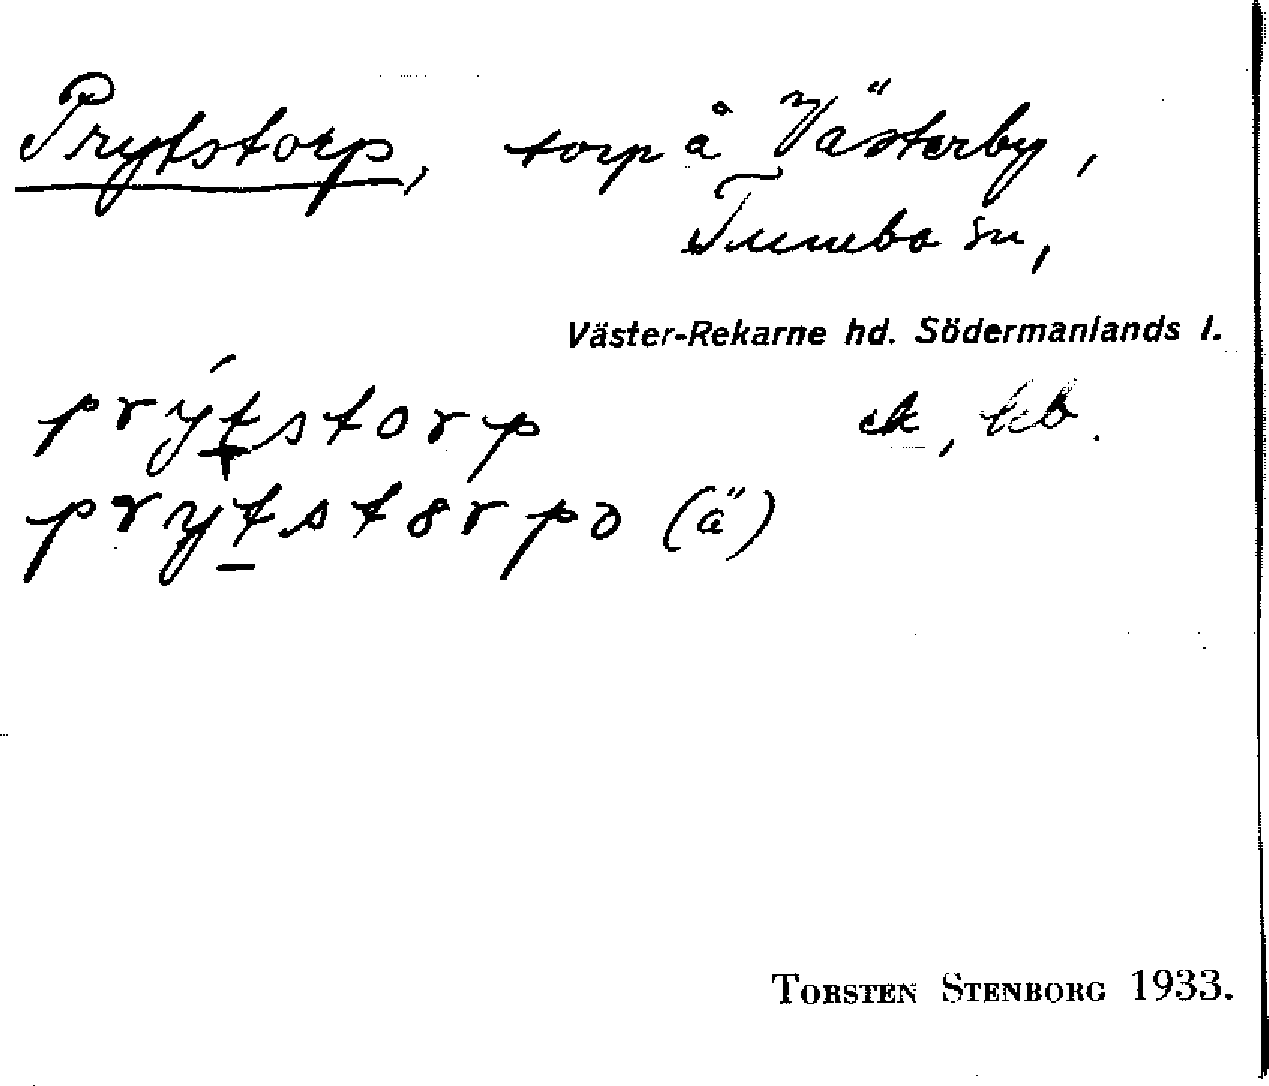 Prytstorp, torp å Västerby,
Tumbo sn,
Väster-Rekarne hd. Södermanlands l.
prýtstorp ek, kb.
prytstorpo (ä)
TORSTEN STENBORG 1933.